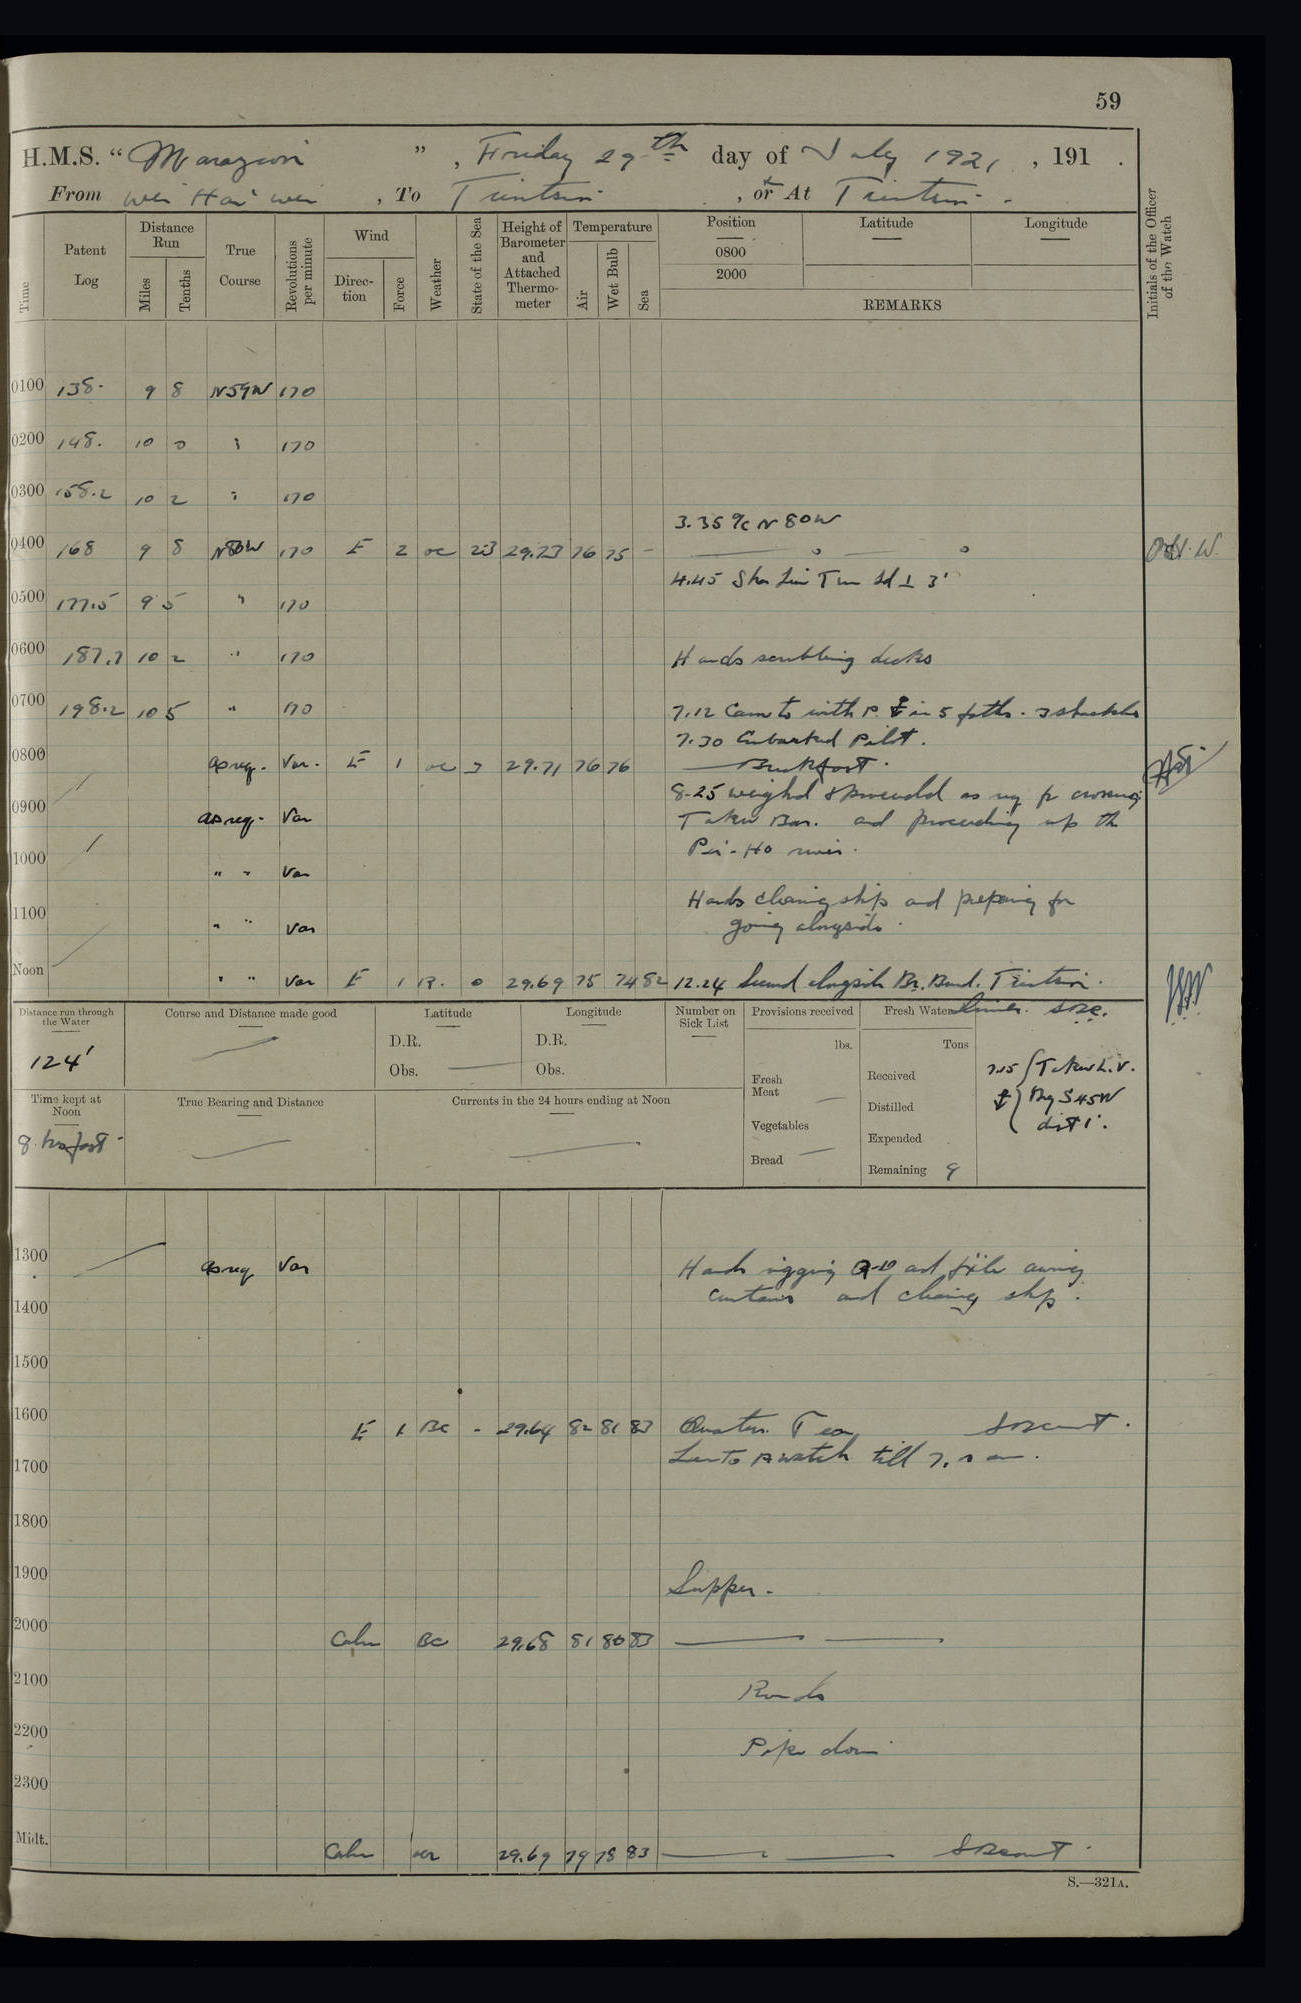 59
H.M.S. “ Marazion ” , Friday 29th day of July 1921 , 191 .
From Wei Hai Wei , To Tientsin , or At Tientsin .
Time
Patent Log
Distance Run
Miles
Tenths
True Course
Revolutions per minute
Wind
Direction
Force
Weather
State of the Sea
Height of Barometer and Attached Thermometer
Temperature
Air
Wet Bulb
Sea
Position
0800
2000
Latitude
Longitude
REMARKS
Initials of the Officer of the Watch
0100 138. 9 8 N59W 170
0200 148. 10 0 " 170
0300 158.2 10 2 " 170
3.35 a/c N 80W
0400 168 9 8 N80W 170 E 2 oc 23 29.73 76 75 -
4.45 Sha Lui Tien 3'
0500 177.5 9 5 " 170
0600 187.7 10 2 " 170 Hands scrubbing decks
0700 198.2 10 5 " 170 7.12 Came to with P. in 5 faths. 3 shackles
7.30 Embarked Pilot.
0800 as req. Var. E 1 oc 29.71 76 76 Breakfast.
8.25 weighed & proceeded as req for crossing
0900 as req. Var Taku Bar. and proceeding up the
Pei-Ho river.
1000 " " Var
Hands cleaning ship and preparing for
1100 " " Var going alongside.
Noon " " Var E 1 B. 0 29.69 75 74 82 12.24 Secured alongside Br. Bund. Tientsin.
Dinner.
Distance run through the Water
124'
Course and Distance made good
Latitude
D.R.
Obs.
Longitude
D.R.
Obs.
Number on Sick List
Provisions received
lbs.
Fresh Meat
Vegetables
Bread
Fresh Water
Tons
Received
Distilled
Expended
Remaining 9
7.15 Taku L.V.
Brg S45W
dist 1'.
Time kept at Noon
8 hrs fast.
True Bearing and Distance
Currents in the 24 hours ending at Noon
1300 as req Var Hands rigging and awning
curtains and cleaning ship.
1400
1500
1600 E 1 BC - 29.64 82 81 83 Quarters. Tea
Leave to watch till 7.0 am.
1700
1800
1900 Supper.
2000 Calm BC 29.68 81 80 83
2100 Rounds
2200 Pipe down
2300
Midt. Calm 29.69 79 78 83
S.—321A.